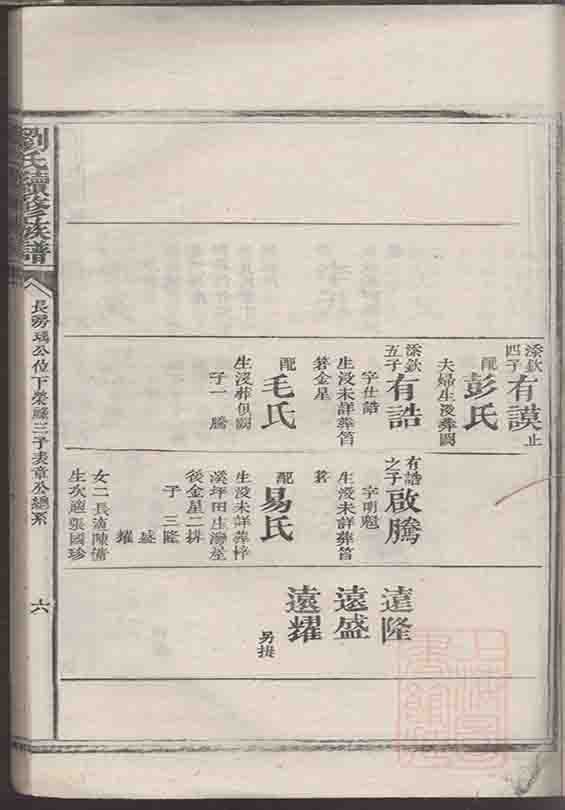 添欽四子
有謨止
配
彭氏
夫婦生没葬闕
添欽五子
有誥
字仕誥
生没未詳葬筲
箕金星
配
毛氏
生没葬俱闕
子一 騰
有誥之子
啟騰
字明魁
生没未詳葬筲
箕
配
易氏
生没未詳葬梓
溪坪田生灣屋
後金星二排
子 三 隆
盛
耀
女二長適陳傭
生次適張國珍
遠隆
遠盛
遠耀
另提
劉氏續修族譜
長房瑀公位下榮祿三子表章公總系
六